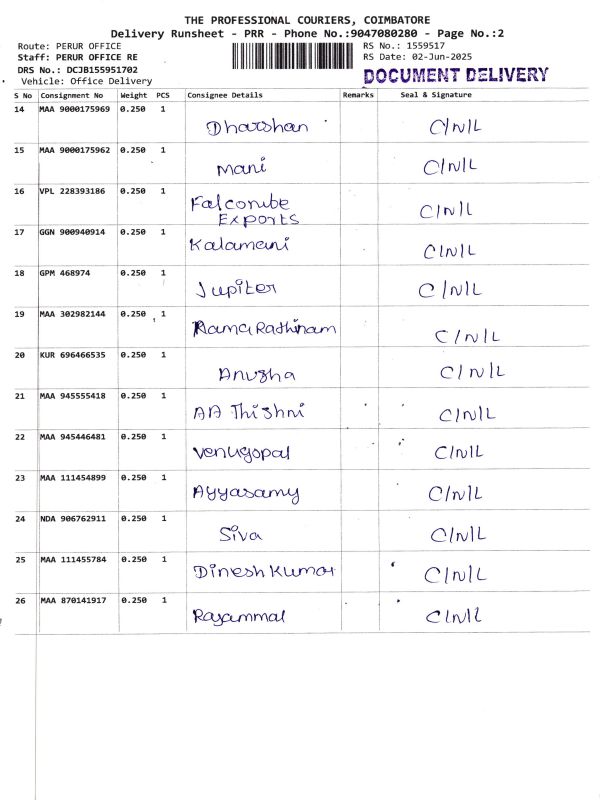 THE PROFESSIONAL COURIERS, COIMBATORE
Delivery Runsheet - PRR - Phone No.:9047080280 - Page No.:2
Route: PERUR OFFICE RS No.: 1559517
Staff: PERUR OFFICE RE RS Date: 02-Jun-2025
DRS No.: DCJB155951702
Vehicle: Office Delivery DOCUMENT DELIVERY
S No Consignment No Weight PCS Consignee Details Remarks Seal & Signature
14 MAA 9000175969 0.250 1
Dharshan C/N/L
15 MAA 9000175962 0.250 1
Mani C/N/L
16 VPL 228393186 0.250 1
Falcombe C/N/L
Exports
17 GGN 900940914 0.250 1
Kalamani C/N/L
18 GPM 468974 0.250 1
Jupiter C/N/L
19 MAA 302982144 0.250 1
Rama Rathinam C/N/L
20 KUR 696466535 0.250 1
Anusha C/N/L
21 MAA 945555418 0.250 1
AA Thishni C/N/L
22 MAA 945446481 0.250 1
Venugopal C/N/L
23 MAA 111454899 0.250 1
Ayyasamy C/N/L
24 NDA 906762911 0.250 1
Siva C/N/L
25 MAA 111455784 0.250 1
Dinesh Kumar C/N/L
26 MAA 870141917 0.250 1
Rajammal C/N/L